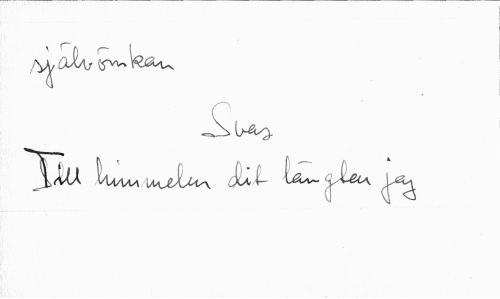 självömkan
Svar
Till himmelen dit längtar jag